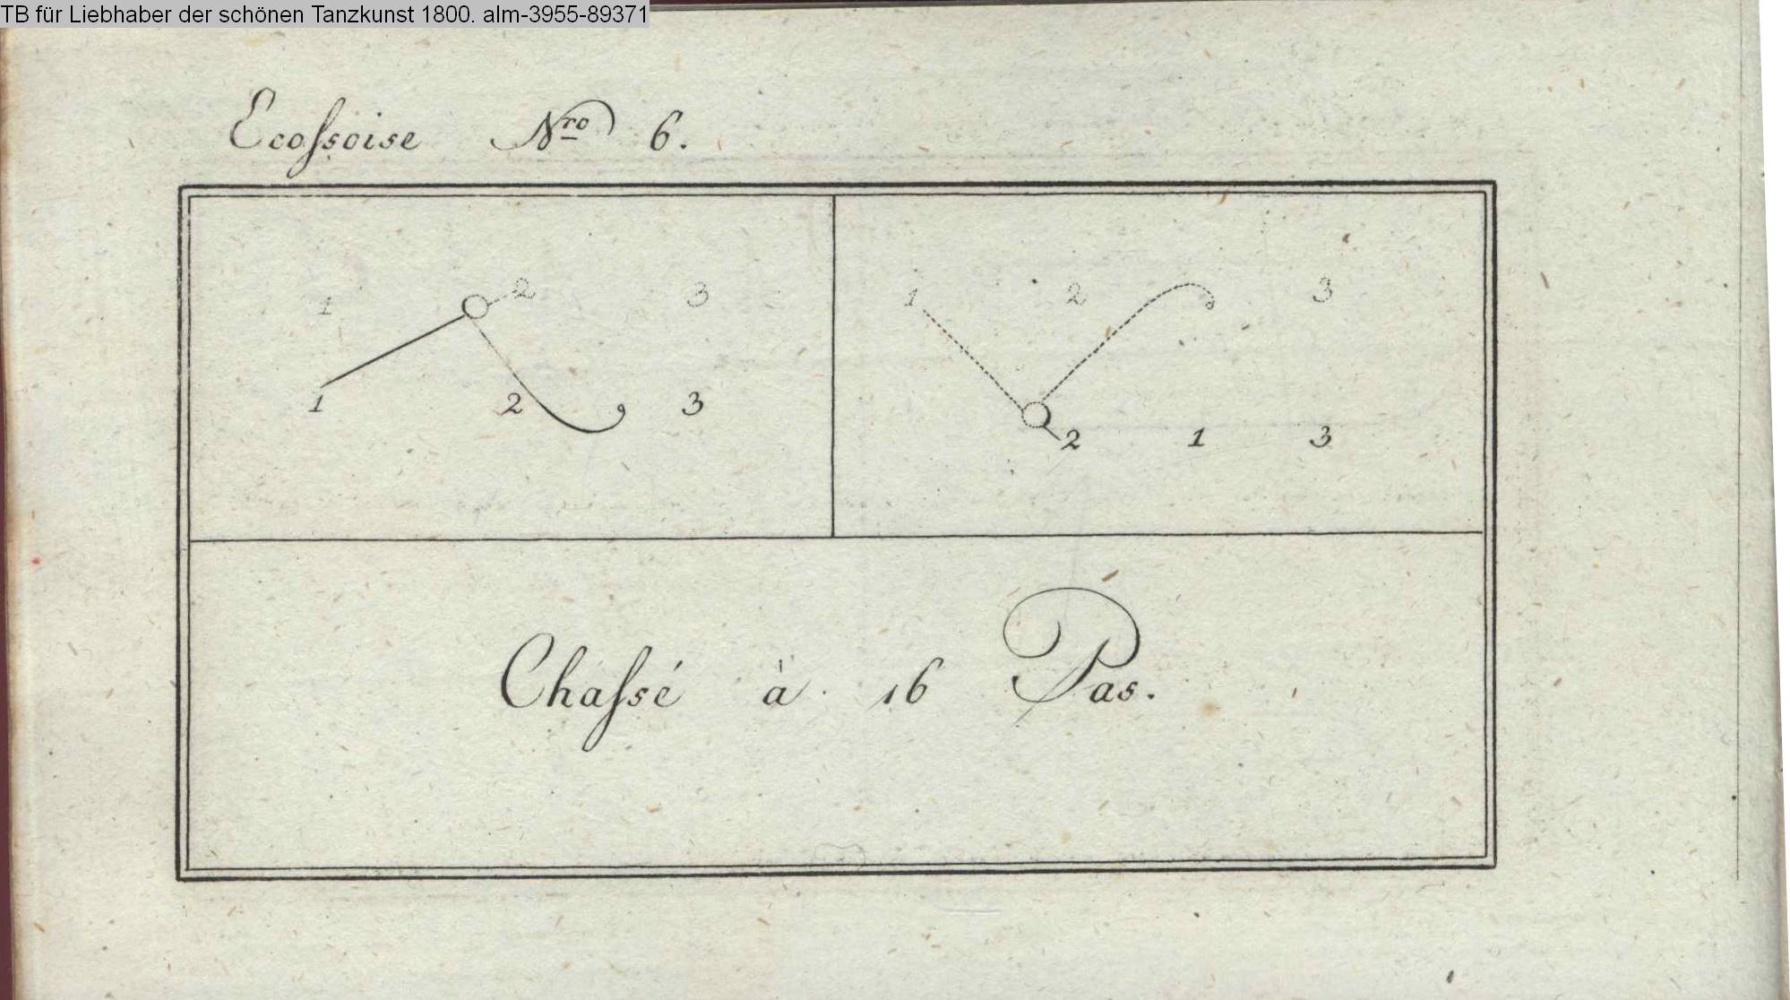 TB für Liebhaber der schönen Tanzkunst 1800. alm-3955-89371
Ecoſsoise Nro 6.
1 2 3
1 2 3
1 2 3
2 1 3
Chaſsé à 16 Pas.